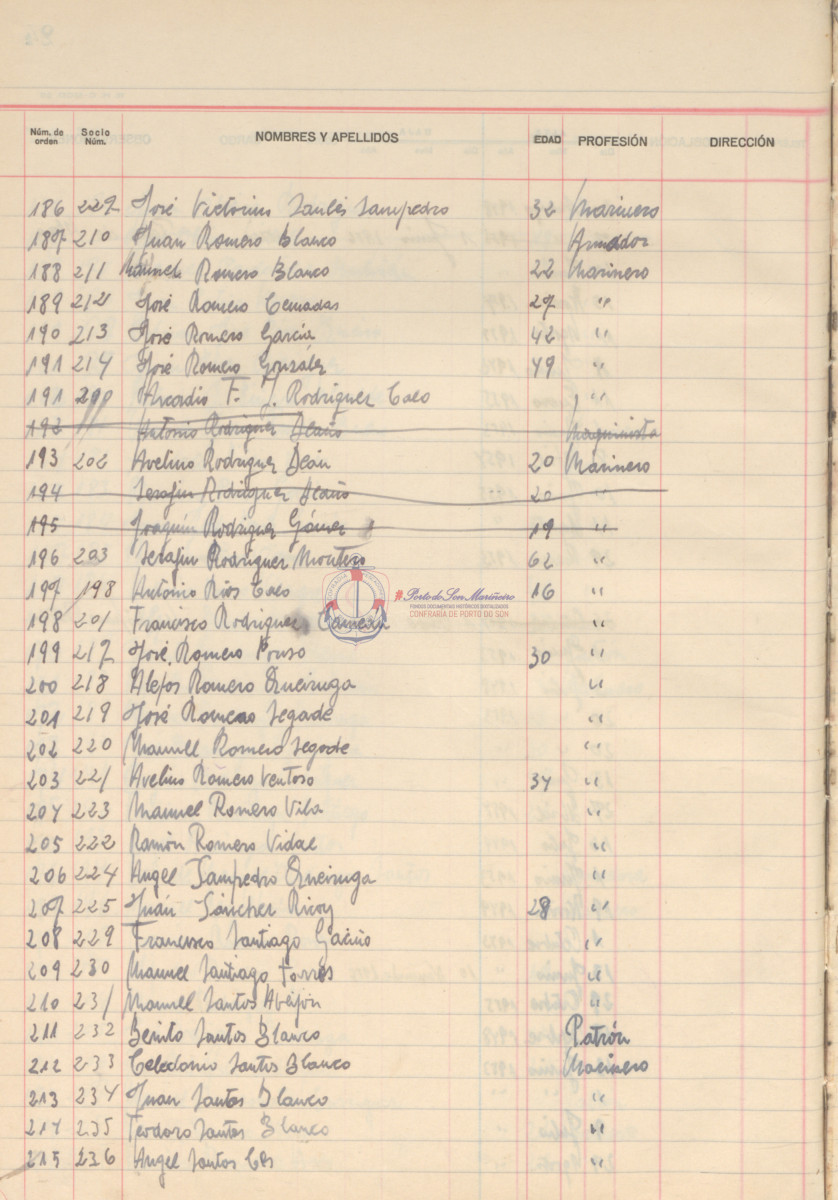 Núm. de orden Socio Núm. NOMBRES Y APELLIDOS EDAD PROFESIÓN DIRECCIÓN
186 227 José Victorino Saulés Sampedro 32 Marinero
187 210 Juan Romero Blanco Armador
188 211 Manuel Romero Blanco 22 Marinero
189 212 José Romero Cernadas 27 "
190 213 José Romero García 42 "
191 214 José Romero González 49 "
191 200 Arcadio F. J. Rodríguez Caeo "
192 Antonio Rodríguez Deaño Maquinista
193 202 Avelino Rodríguez Deán 20 Marinero
194 Serafín Rodríguez Deaño 20 "
195 Joaquín Rodríguez Gómez 19 "
196 203 Serafín Rodríguez Montero 62 "
197 198 Antonio Ríos Caeo 16 "
198 201 Francisco Rodríguez "
CONFRARÍA
#Porto do Son Mariñeiro
FONDOS DOCUMENTAIS HISTÓRICOS DIXITALIZADOS
CONFRARÍA DE PORTO DO SON
199 217 José Romero Pouso 30 "
200 218 Alejos Romero Queiruga "
201 219 José Romero Segade "
202 220 Manuel Romero Segade "
203 221 Avelino Romero Ventoso 34 "
204 223 Manuel Romero Vila "
205 222 Ramón Romero Vidal "
206 224 Angel Sampedro Queiruga "
207 225 Juán Sánchez Ricoy 28 "
208 229 Francisco Santiago Gaciño "
209 230 Manuel Santiago Torres "
210 231 Manuel Santos Abeijón "
211 232 Benito Santos Blanco Patrón
212 233 Celedonio Santos Blanco Marinero
213 234 Juan Santos Blanco "
214 235 Teodoro Santos Blanco "
215 236 Angel Santos Ces "